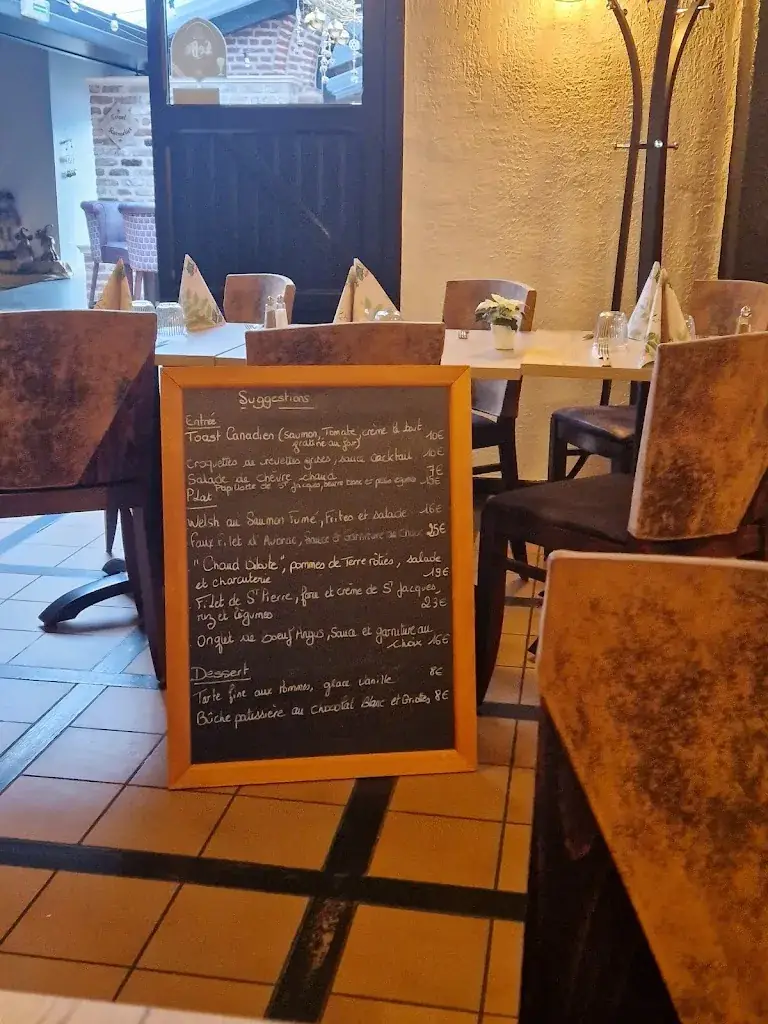 Suggestions
Entrée
Toast Canadien (Saumon, Tomate, crème et tout
gratiné au four) 10€
Croquettes au crevettes grises, sauce cocktail 10€
Salade de chèvre chaud 7€
Papillotte de St Jacques, beurre blanc et
Plat
Welsh au Saumon Fumé, Frites et salade 16€
Faux Filet d'Aubrac, sauce et garniture au choix 25€
"Chaud Biloute", pommes de Terre rôties, salade
et charcuterie 19€
Filet de St Pierre, et crème de St Jacques,
riz et légumes 23€
Onglet de boeuf Angus, Sauce et garniture au
choix 16€
Dessert
Tarte fine aux Pommes, glace vanille 8€
Bûche patissière au chocolat Blanc et Griottes 8€